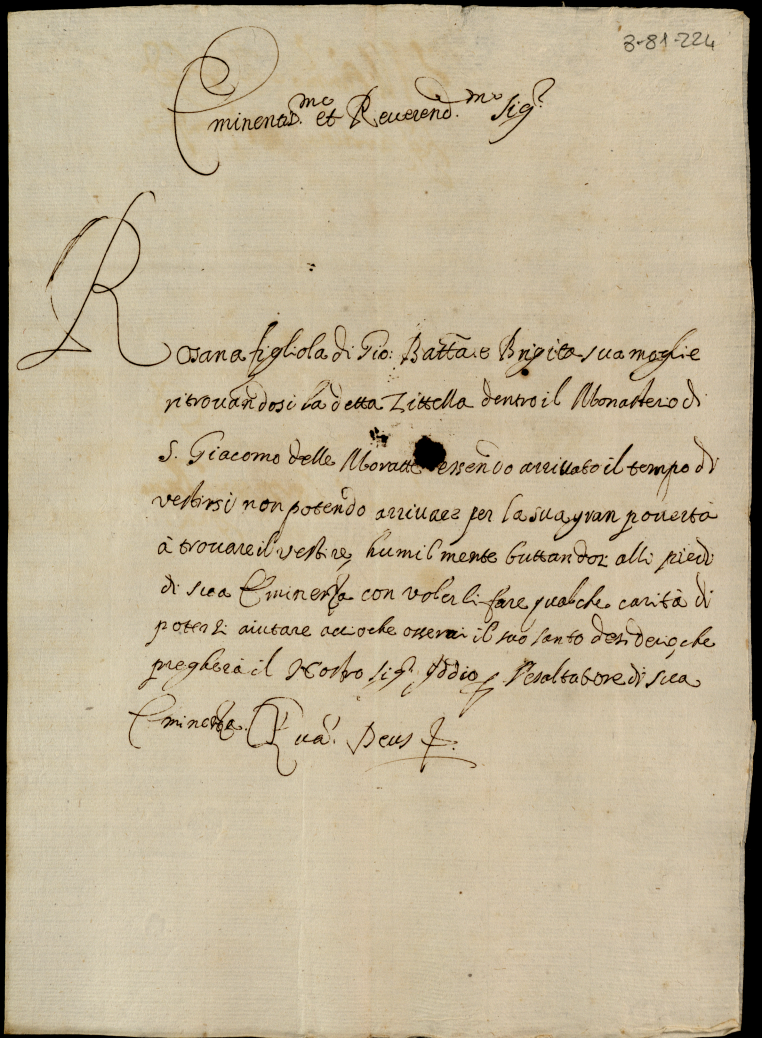 3-81-224
Eminentiss.mo et Reverend.mo Sig.r
Rosana figliola di Gio: Batta e Brigita sua moglie
ritrovandosi la detta Zittella dentro il Monastero di
S. Giacomo delle Moratte essendo arrivato il tempo di
vestirsi non potendo arrivare per la sua gran povertà
à trovare il vestire, humilmente buttandosi alli piedi
di sua Eminenza con volerli fare qualche carità di
poterzi aiutare acioche osservi il suo santo desiderio, che
pregherà il Nostro Sig.r Iddio p l'esaltatione di sua
Eminenza. Qua. Deus